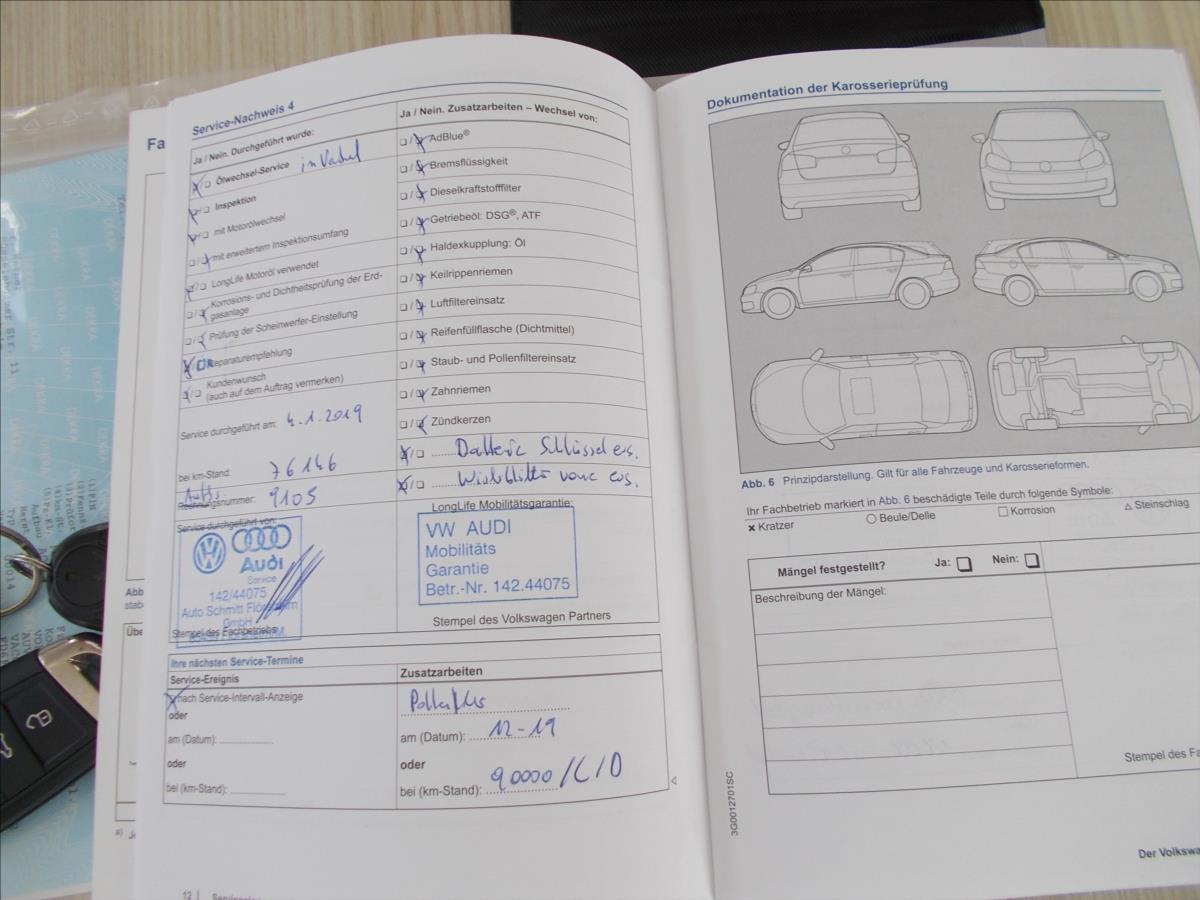 Service-Nachweis 4
Ja / Nein. Durchgeführt wurde:
Ölwechsel-Service
Inspektion
mit Motorölwechsel
mit erweitertem Inspektionsumfang
LongLife Motoröl verwendet
Korrosions- und Dichtheitsprüfung der Erd-
gasanlage
Prüfung der Scheinwerfer-Einstellung
Reparaturempfehlung
Kundenwunsch
(auch auf dem Auftrag vermerken)
Service durchgeführt am: 4.1.2019
bei km-Stand: 76146
Rechnungsnummer: 9105
Service durchgeführt von:
Audi
Service
142/44075
Auto Schmitt
GmbH
Stempel des Fachbetriebs
Ja / Nein. Zusatzarbeiten – Wechsel von:
AdBlue®
Bremsflüssigkeit
Dieselkraftstofffilter
Getriebeöl: DSG®, ATF
Haldexkupplung: Öl
Keilrippenriemen
Luftfiltereinsatz
Reifenfüllflasche (Dichtmittel)
Staub- und Pollenfiltereinsatz
Zahnriemen
Zündkerzen
Batterie Schlüssel ers.
ers.
LongLife Mobilitätsgarantie:
VW AUDI
Mobilitäts
Garantie
Betr.-Nr. 142.44075
Stempel des Volkswagen Partners
Ihre nächsten Service-Termine
Service-Ereignis
nach Service-Intervall-Anzeige
oder
am (Datum):
oder
bei (km-Stand):
Zusatzarbeiten
am (Datum): 12-19
oder
bei (km-Stand): 90000/
12
Dokumentation der Karosserieprüfung
Abb. 6 Prinzipdarstellung. Gilt für alle Fahrzeuge und Karosserieformen.
Ihr Fachbetrieb markiert in Abb. 6 beschädigte Teile durch folgende Symbole:
Kratzer Beule/Delle Korrosion Steinschlag
Mängel festgestellt? Ja: Nein:
Beschreibung der Mängel:
Stempel des Fa
3G0012701SC
Der Volkswa
Fa
Abb
stab
Übe
Str. 11
DEKRA